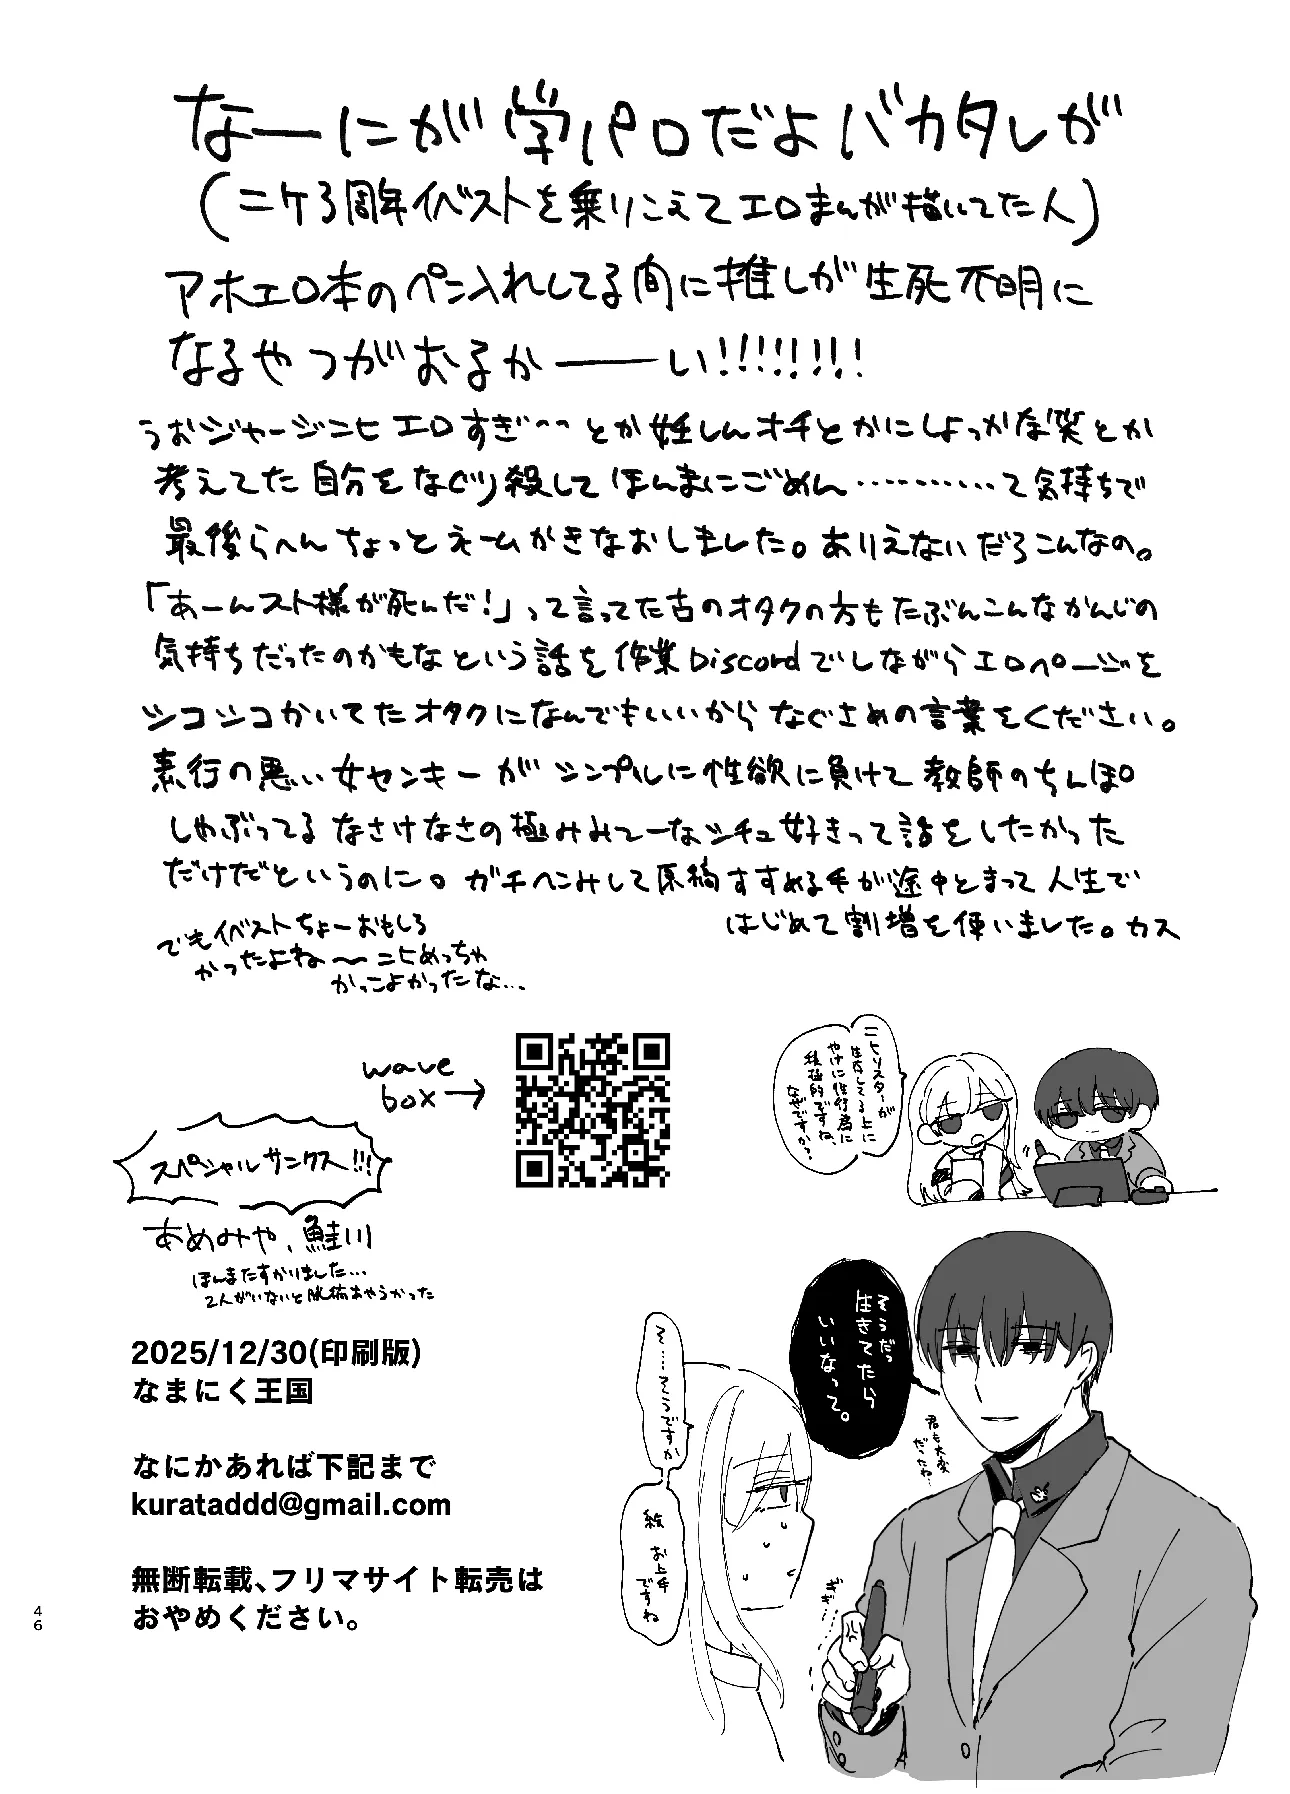 なーにが学パロだよバカタレが
(ニケ3周年イベストを乗りこえてエロまんが描いてた人)
アホエロ本のペン入れしてる間に推しが生死不明に
なるやつがおるかーーい!!!!!!!!
うおジャージニヒエロすぎ〜〜とか妊しんオチとかにしよっかな笑とか
考えてた自分をなぐり殺してほんまにごめん…………って気持ちで
最後らへんちょっとネームかきなおしました。ありえないだろこんなの。
「あーんスト様が死んだ!」って言ってた古のオタクの方もたぶんこんなかんじの
気持ちだったのかもなという話を作業Discordでしながらエロページを
シコシコかいてたオタクになんでもいいからなぐさめの言葉をください。
素行の悪い女ヤンキーがシンプルに性欲に負けて教師のちんぽ
しゃぶってるなさけなさの極みみてーなシチュ好きって話をしたかった
だけだというのに。ガチへこみして原稿すすめる手が途中とまって人生で
はじめて割増を使いました。カス
でもイベストちょーおもしろ
かったよね〜ニヒめっちゃ
かっこよかったな…
wave
box→
スペシャルサンクス!!!
あめみや、鮭川
ほんまたすかりました…
2人がいないと脱稿あやうかった
2025/12/30(印刷版)
なまにく王国
なにかあれば下記まで
kurataddd@gmail.com
無断転載、フリマサイト転売は
おやめください。
ニヒリスターが
生存してる上に
やけに性行為に
積極的ですね、
なぜですか?
そうだっ
生きてたら
いいなって。
君も大変
だったね…
そ……そうですか
絵 お上手
ですね
ぎぎ…
46